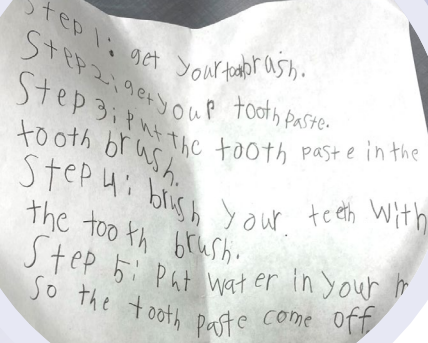 Step 1: get your toothbrash.
Step 2: get your tooth paste.
Step 3: put the tooth paste in the
tooth brush.
Step 4: brush your teeth with
the tooth brush.
Step 5: put water in your
so the tooth paste come off.